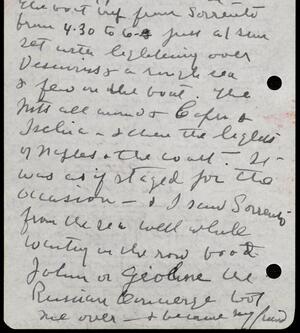 the boat trip from Sorrento
from 4.30 to 6 - just a/ sun
set with lightening over
Vesuvius & a rough sea
& few on the boat. The
Mts all around & Capri &
Ischia - & then the lights
of Naples & the coast. It
was as if staged for the
occasion - & I saw Sorrento
from the sea well while
waiting in the row boat
John or the
Russian Concierge took
me over - & became my